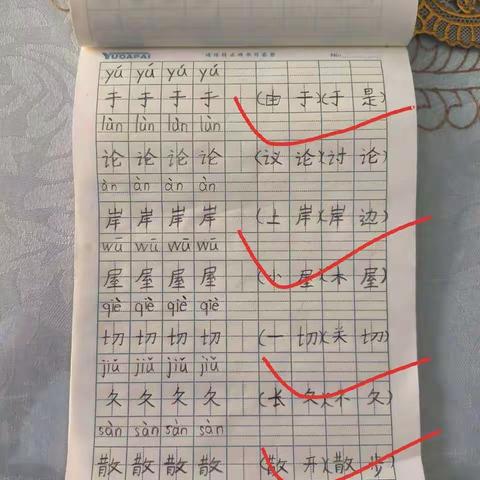 YUDAPAI
No.
yú yú yú yú
于 于 于 于 (由 于)(于 是)
lùn lùn lùn lùn
论 论 论 论 (议 论)(讨 论)
àn àn àn àn
岸 岸 岸 岸 (上 岸)(岸 边)
wū wū wū wū
屋 屋 屋 屋 (小 屋)(木 屋)
qiè qiè qiè qiè
切 切 切 切 (一 切)(关 切)
jiǔ jiǔ jiǔ jiǔ
久 久 久 久 (长 久)(不 久)
sàn sàn sàn sàn
散 散 散 散 (散 开)(散 步)